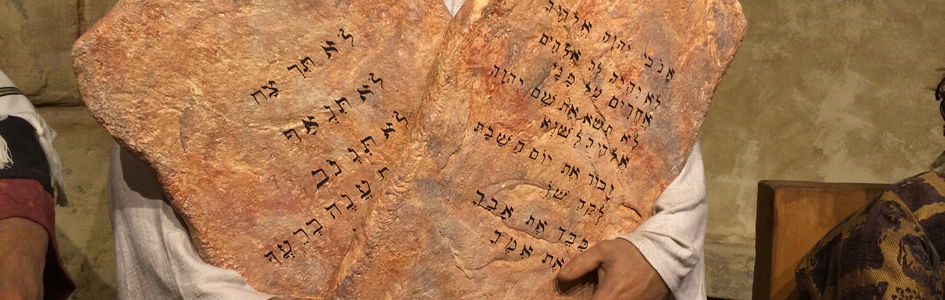 אנכי יהוה אלהיך
לא יהיה לך אלהים
אחרים על פני
לא תשא את שם יהוה
אלהיך לשוא
זכור את יום השבת
לקדשו
כבד את אביך
ואת אמך
לא תרצח
לא תנאף
לא תגנב
תענה ברעך